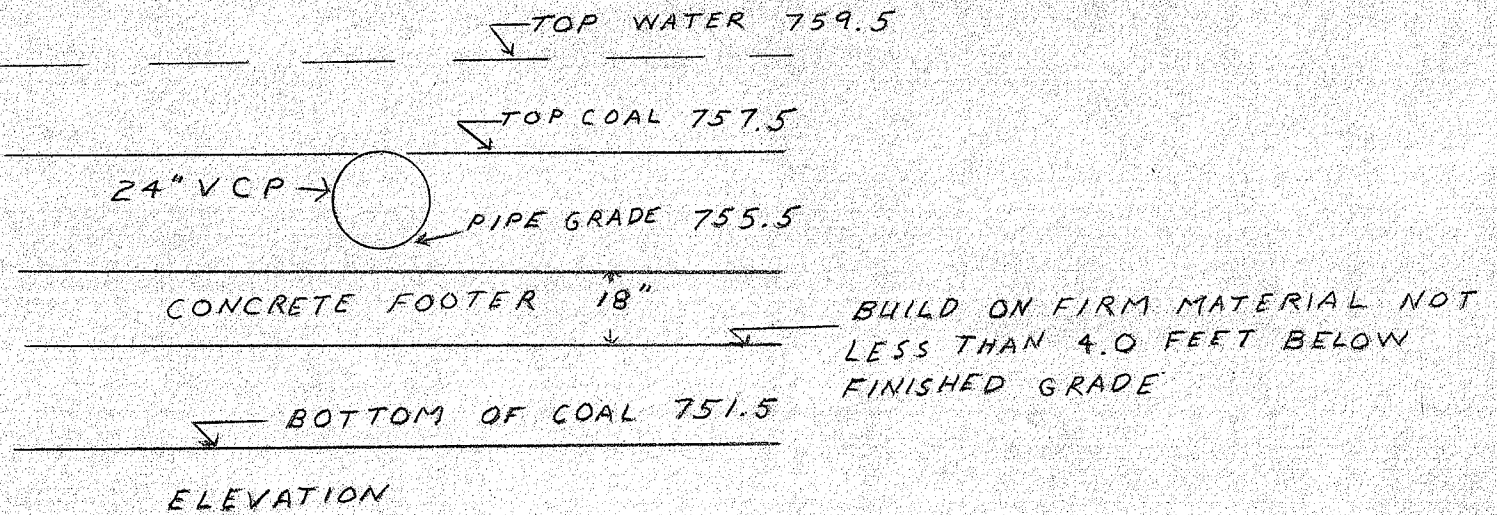 TOP WATER 759.5
TOP COAL 757.5
24" V C P
PIPE GRADE 755.5
CONCRETE FOOTER 18"
BUILD ON FIRM MATERIAL NOT
LESS THAN 4.0 FEET BELOW
FINISHED GRADE
BOTTOM OF COAL 751.5
ELEVATION